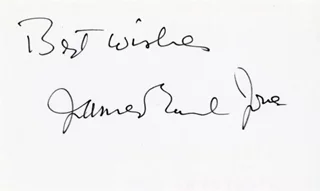 Best wishes
James Earl Jones